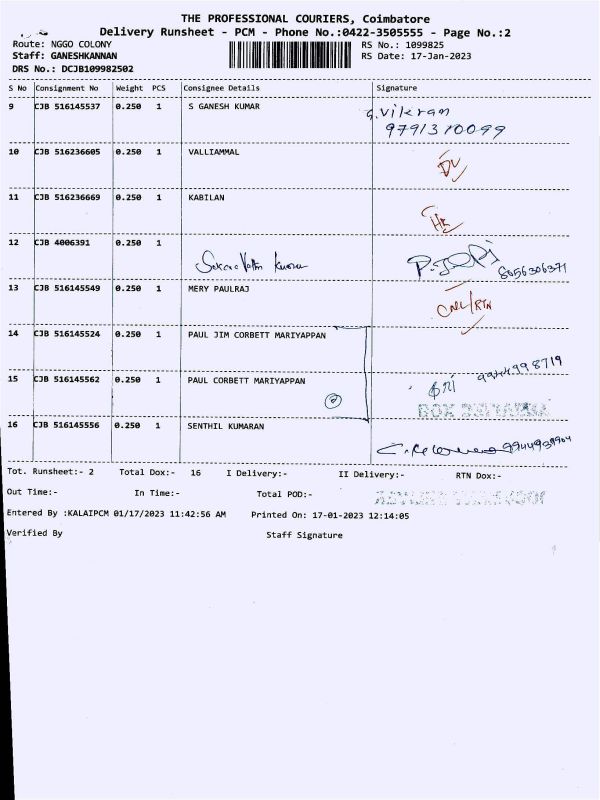 THE PROFESSIONAL COURIERS, Coimbatore
Delivery Runsheet - PCM - Phone No.:0422-3505555 - Page No.:2
Route: NGGO COLONY RS No.: 1099825
Staff: GANESHKANNAN RS Date: 17-Jan-2023
DRS No.: DCJB109982502
S No Consignment No Weight PCS Consignee Details Signature
9 CJB 516145537 0.250 1 S GANESH KUMAR G.Vikram
9791310099
10 CJB 516236605 0.250 1 VALLIAMMAL DL
11 CJB 516236669 0.250 1 KABILAN
12 CJB 4006391 0.250 1
8056306371
13 CJB 516145549 0.250 1 MERY PAULRAJ CNL/RTN
14 CJB 516145524 0.250 1 PAUL JIM CORBETT MARIYAPPAN
9944998719
15 CJB 516145562 0.250 1 PAUL CORBETT MARIYAPPAN
2
16 CJB 516145556 0.250 1 SENTHIL KUMARAN
9944939904
Tot. Runsheet:- 2 Total Dox:- 16 I Delivery:- II Delivery:- RTN Dox:-
Out Time:- In Time:- Total POD:-
Entered By :KALAIPCM 01/17/2023 11:42:56 AM Printed On: 17-01-2023 12:14:05
Verified By Staff Signature